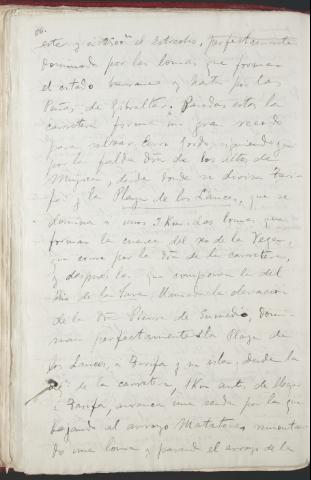 86.
este y a tiro el Estrecho, perfectamente
dominado por las lomas que forman
el estado barranco y hasta por las
Peñas de Gibraltar. Pasadas estos la
carretera forma un gran recodo
para salvar Cerro Gordo, siguiendo
por la falda dra de los altos de
desde donde se divisa Tari-
fa y la Playa de los Lances, que se
domina a unos 3 Km. Las lomas que
forman la cuenca del río de la Vega,
que corre por la dra de la carretera,
y después las que componen la del
Río de la Jara, llamada la elevación
de la dra Sierra de Enmedio, domi-
nan perfectamente la Playa de
los Lances, a Tarifa y su isla. desde la
de la carretera, 1 Km antes de llegar
a Tarifa, arranca una senda por la que
bajando al arroyo Matatoros, remontan-
do una loma y pasando el arroyo de la